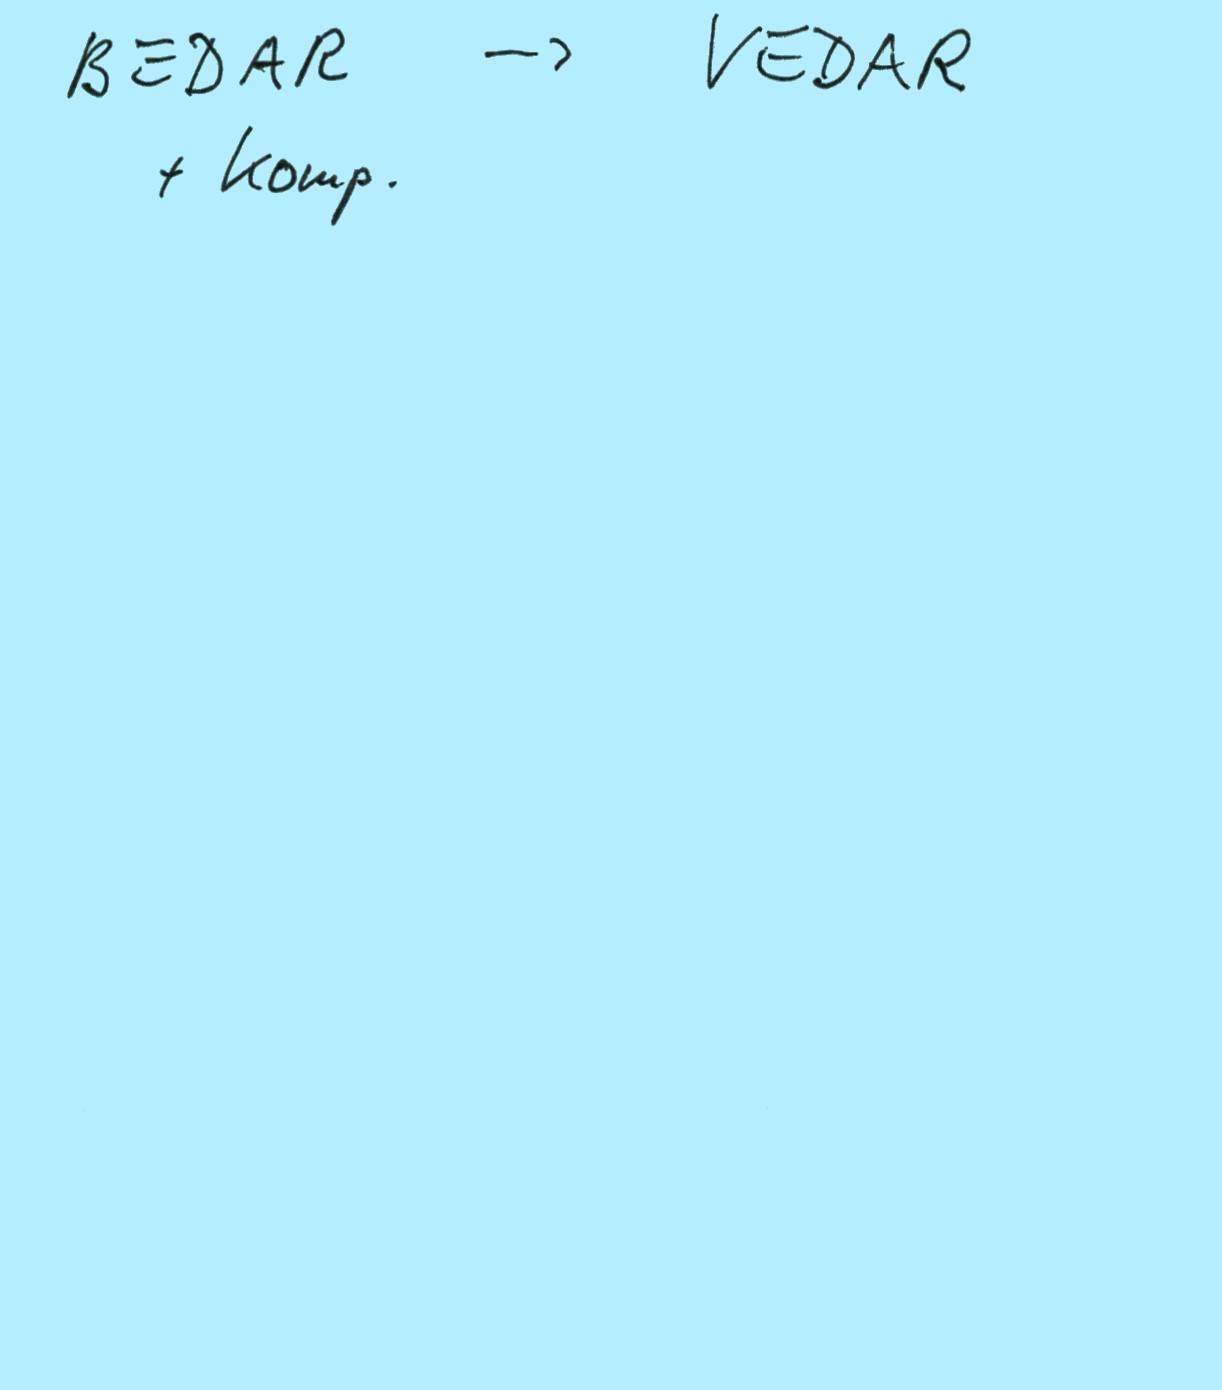 BEDAR -> VEDAR
+ Komp.